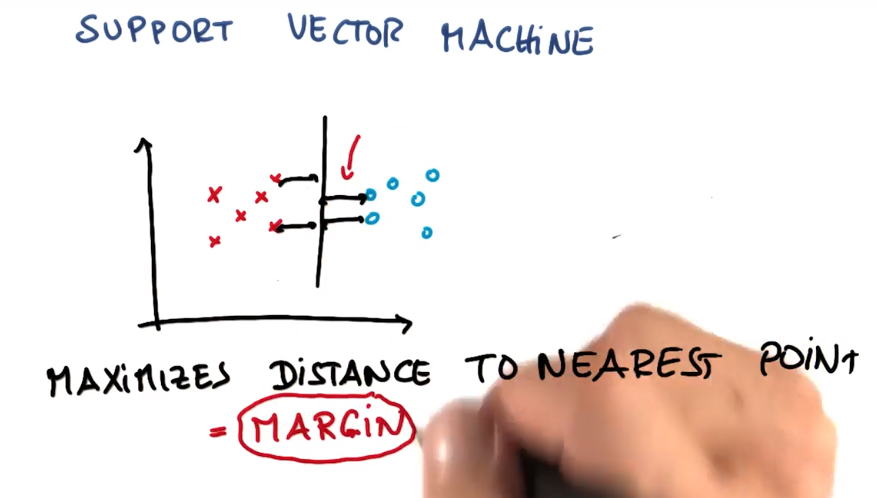 SUPPORT VECTOR MACHINE
MAXiMiZES DiSTANCE TO NEAREST POiNt
= MARGiN